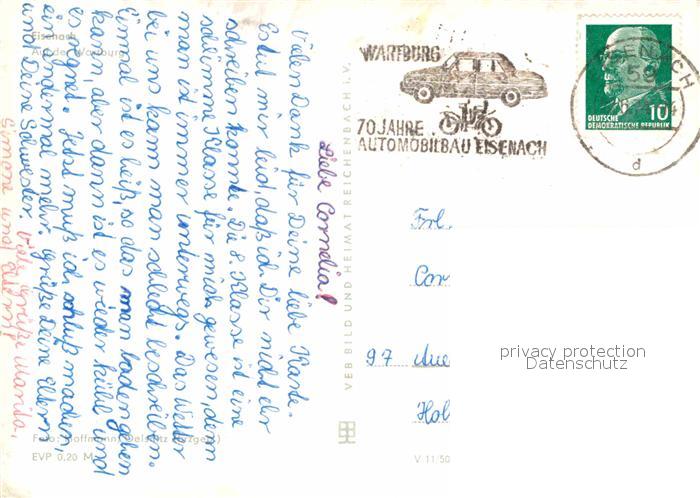 Liebe Cornelia!
Vielen Dank für Deine liebe Karte.
Es tut mir leid, daß ich Dir nicht eher
schreiben konnte. Die 8. Klasse ist eine
schlimme Klasse für mich gewesen, denn
man ist immer unterwegs. Das Wetter
bei uns kann man schlecht beschreiben.
Einmal ist es heiß, so das man baden gehen
kann, aber dann ist es wieder kühl und
es regnet. Jetzt muß ich schluß machen,
ein andermal mehr. Grüße Deine Eltern
und Deine Schwester. Viele Grüße Marita,
Simone und Eltern!
Eisenach
Auf der Wartburg
Foto: Hoffmann, Oelsnitz (Erzgeb.)
EVP 0,20 M
VEB BILD UND HEIMAT REICHENBACH I. V.
V 11/50
WARTBURG
70 JAHRE
AUTOMOBILBAU EISENACH
EISENACH
59
d
10
DEUTSCHE
DEMOKRATISCHE REPUBLIK
Frl.
Cor
97 Aue
Hol
privacy protection
Datenschutz